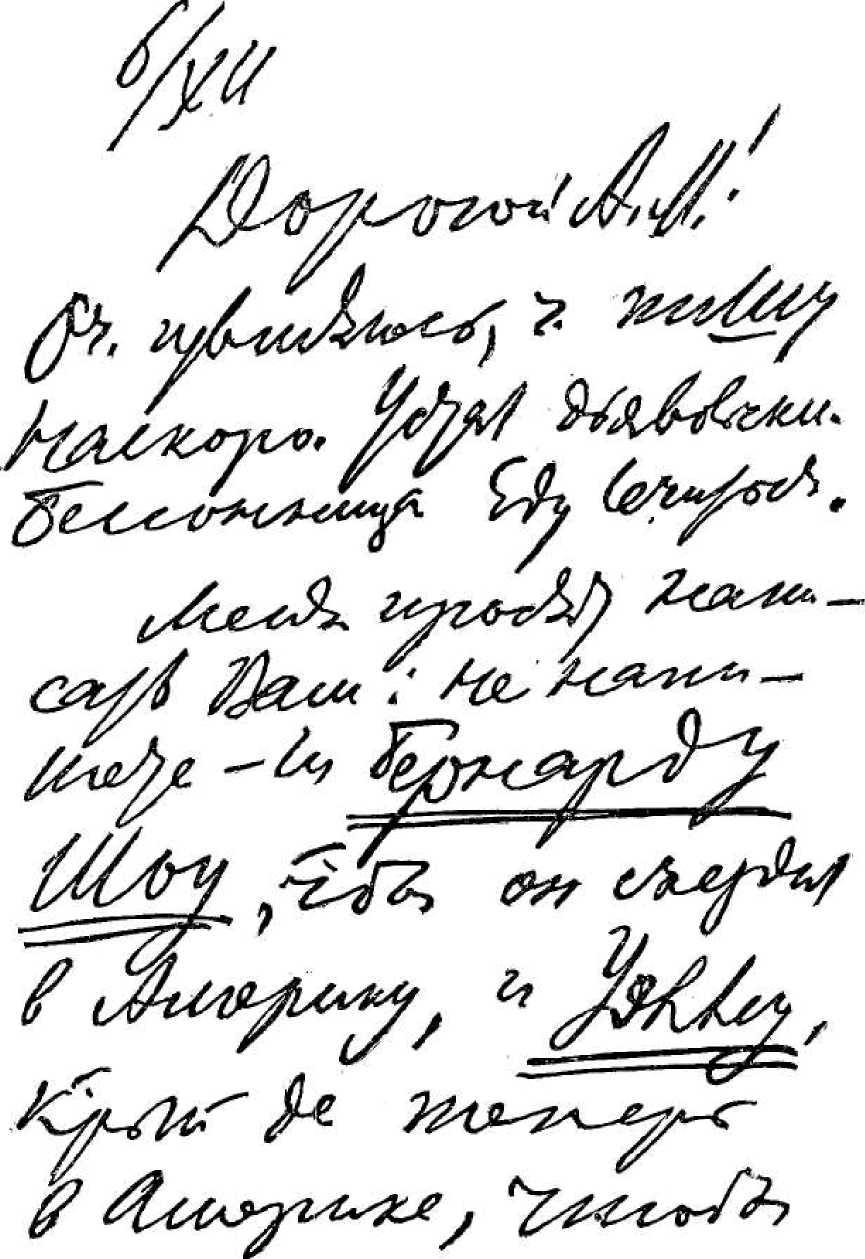 6/XII
Дорогой А. М.!
Оч. извиняюсь, ч. пишу
наскоро. Устал дьявольски.
Бессонница. Еду лечиться.
Меня просят напи-
сать Вам: не напи-
шете-ли Бернарду
Шоу, чтобы он съездил
в Америку, и Уэллсу,
который де теперь
в Америке, чтобы